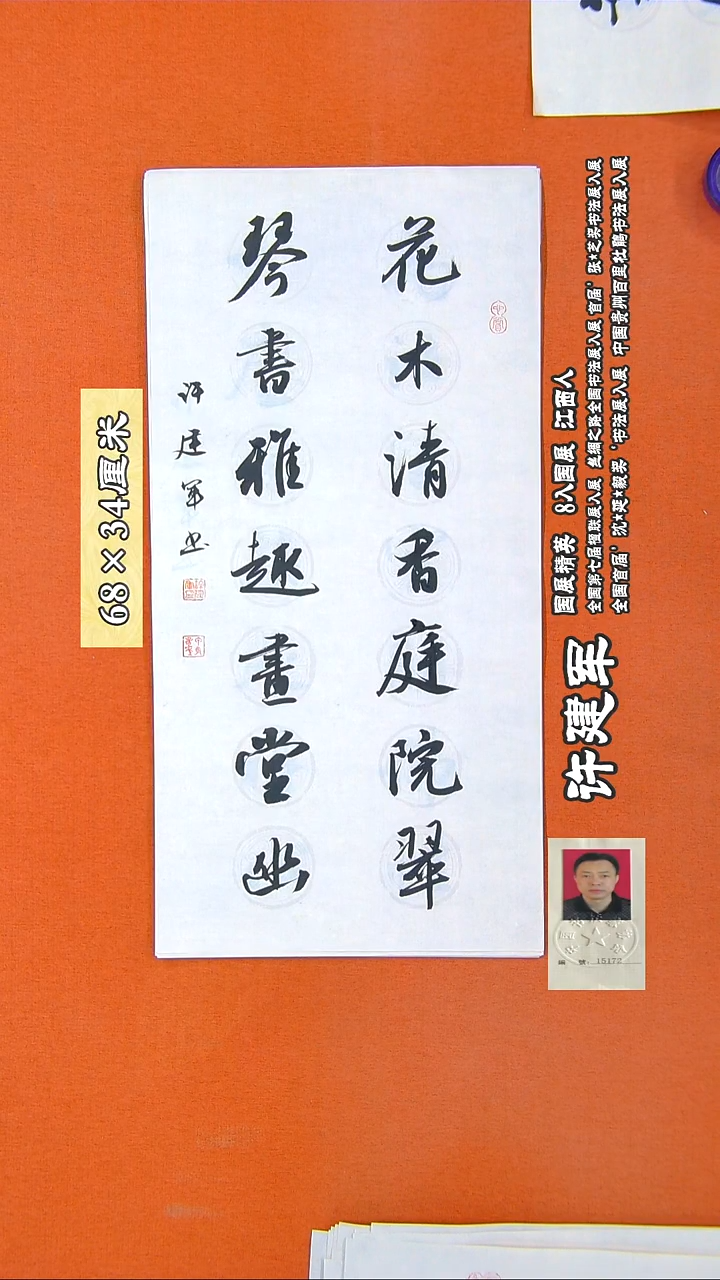 花木清香庭院翠
琴書雅趣畫堂幽
许建军书
68×34厘米
许建军
国展精英 8入国展 江西人
全国第七届楹联展入展 丝绸之路全国书法展入展 首届'张*芝奖书法展入展
全国首届'沈*延*毅奖'书法展入展 中国贵州百里杜鹃书法展入展
編 號:15172